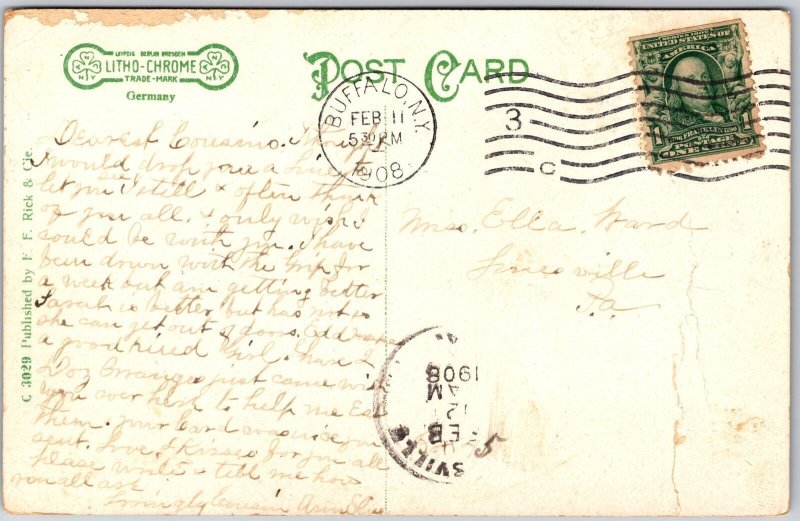 LEIPZIG BERLIN DRESDEN
LITHO-CHROME
TRADE-MARK
Germany
POST CARD
BUFFALO, N.Y.
FEB 11
5 30 PM
1908
3
C
SERIES 1902
UNITED STATES OF AMERICA
FRANKLIN
POSTAGE
ONE CENT
C 3029 Published by F. E. Rick & Cie.
Dearest Cousins. Thought
I would drop you a line to
let you see I still & often think
of you all. & only wish I
could be with you. I have
been down with the Grip for
a week but am getting better
Sarah is better but has not
she can get out of doors.
a good hired Girl. have 2
Doz Oranges just came
were over here to help me Eat
them. your card was
sent. Love & Kisses for you all
please write & tell me how
you all are
Lovingly Cousin
Miss. Ella. Ward
Linesville
Pa.
SVILLE
FEB
12
AM
1908
5